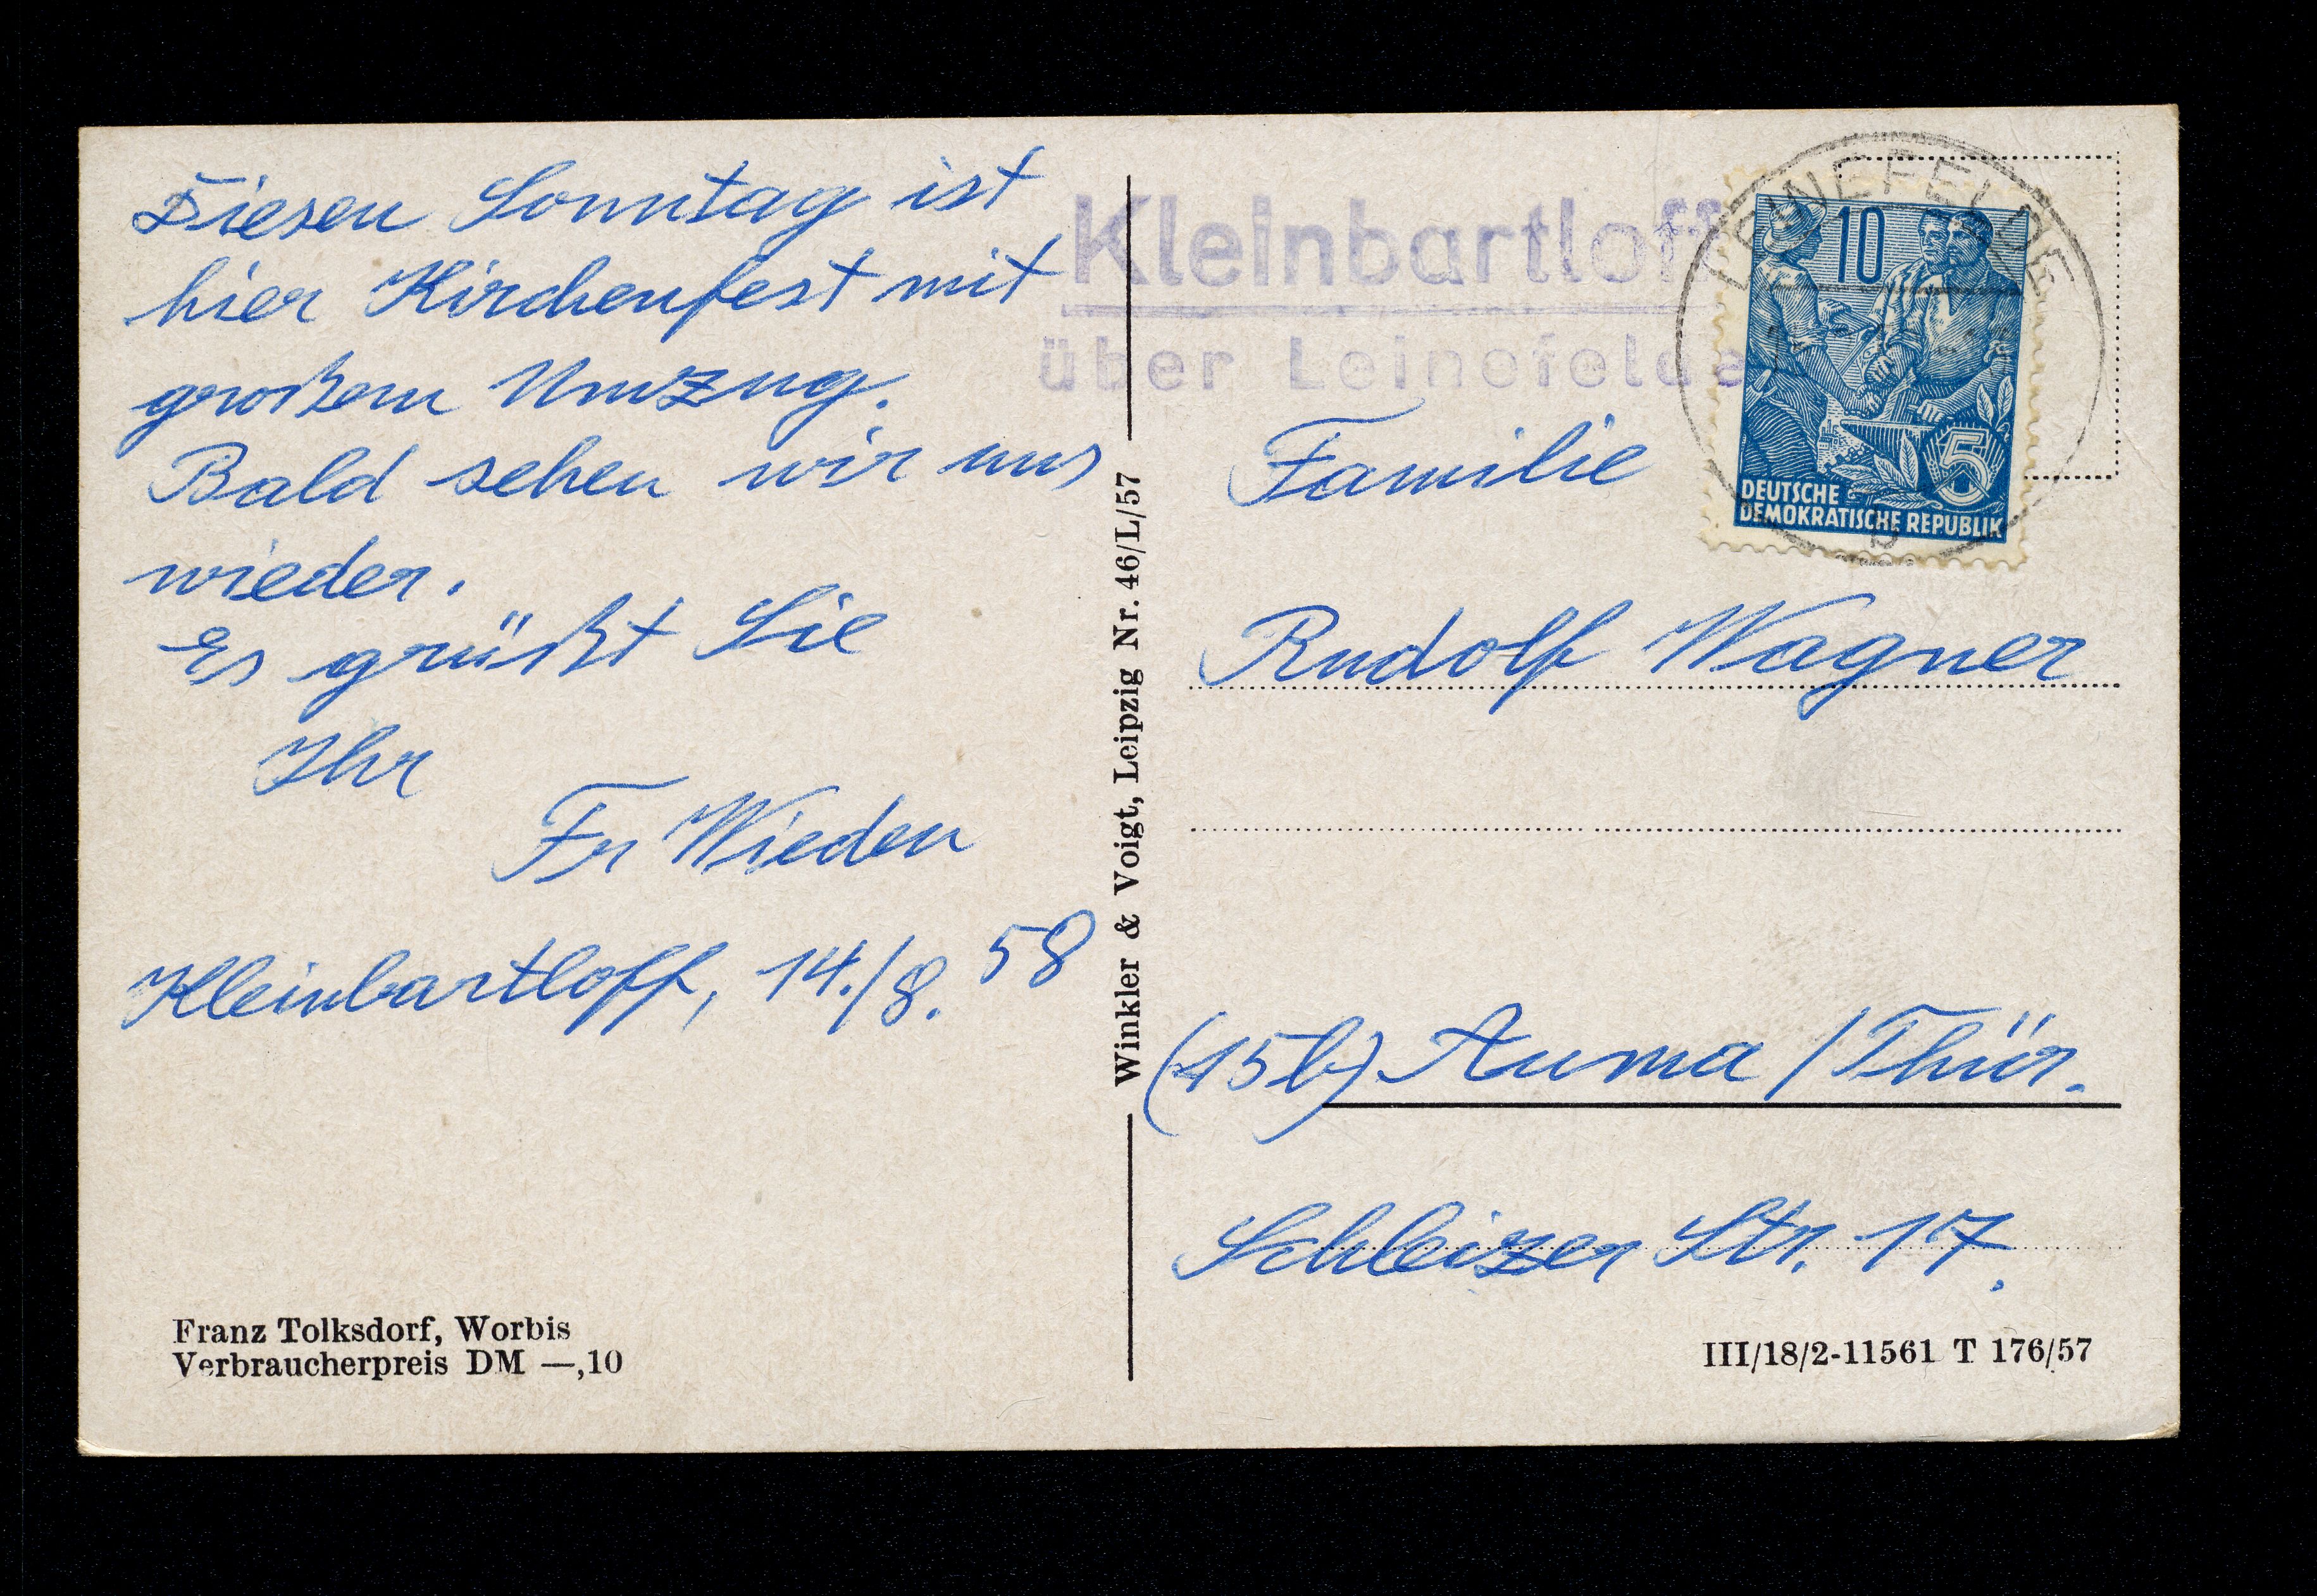 Diesen Sonntag ist
hier Kirchenfest mit
großem Umzug.
Bald sehen wir uns
wieder.
Es grüßt Sie
Ihr
Fr Wieden
Kleinbartloff, 14./8. 58
Franz Tolksdorf, Worbis
Verbraucherpreis DM —,10
Winkler & Voigt, Leipzig Nr. 46/L/57
Kleinbartloff
über Leinefelde
LEINEFELDE
10
5
DEUTSCHE
DEMOKRATISCHE REPUBLIK
Familie
Rudolf Wagner
(15b) Auma / Thür.
Schleizer Str. 17.
III/18/2-11561 T 176/57